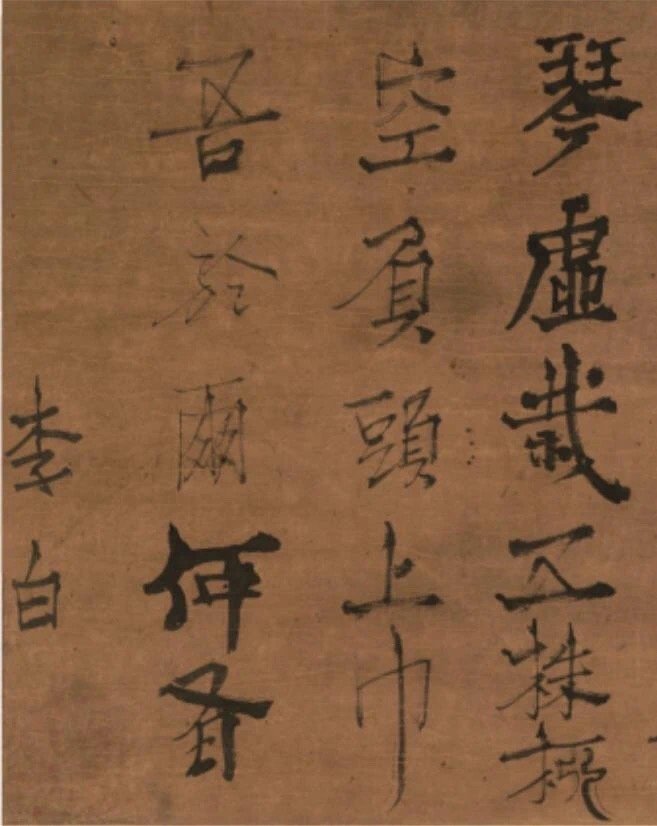 琴虛栽五株柳
空負頭上巾
吾於爾何有
李白